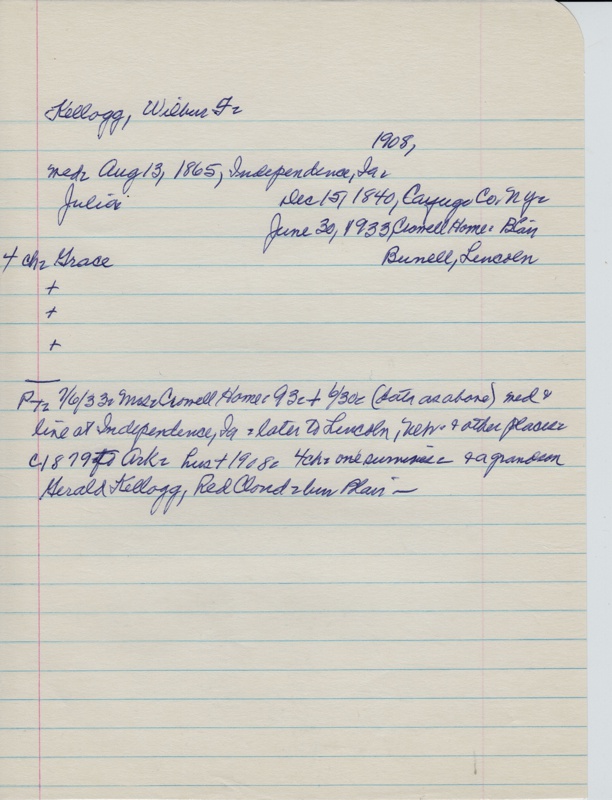 Kellogg, Wilbur F-
1908,
med- Aug 13, 1865, Independence, Ia-
Julia Dec 15, 1840, Cayuga Co, Ny-
June 30, 1933, Crowell Home- Blair
4 ch- Grace Burell, Lincoln
+
+
+
P+- 7/6/33- Mrs- Crowell Home- 93- + 6/30- (data as above) med &
line at Independence, Ia - later to Lincoln, & other places-
c1879 to Ark- hus + 1908- 4ch- one survives- & a grandson
Gerald Kellogg, Red Cloud - bur Blair -